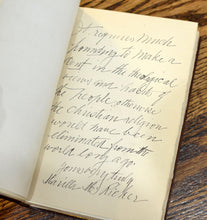 It requires much
pounding to make a
dent in the theological
and habits of
the people, otherwise
the Christian religion
would have been
eliminated from the
world long ago.
Yours very truly,
Marilla M. Ricker